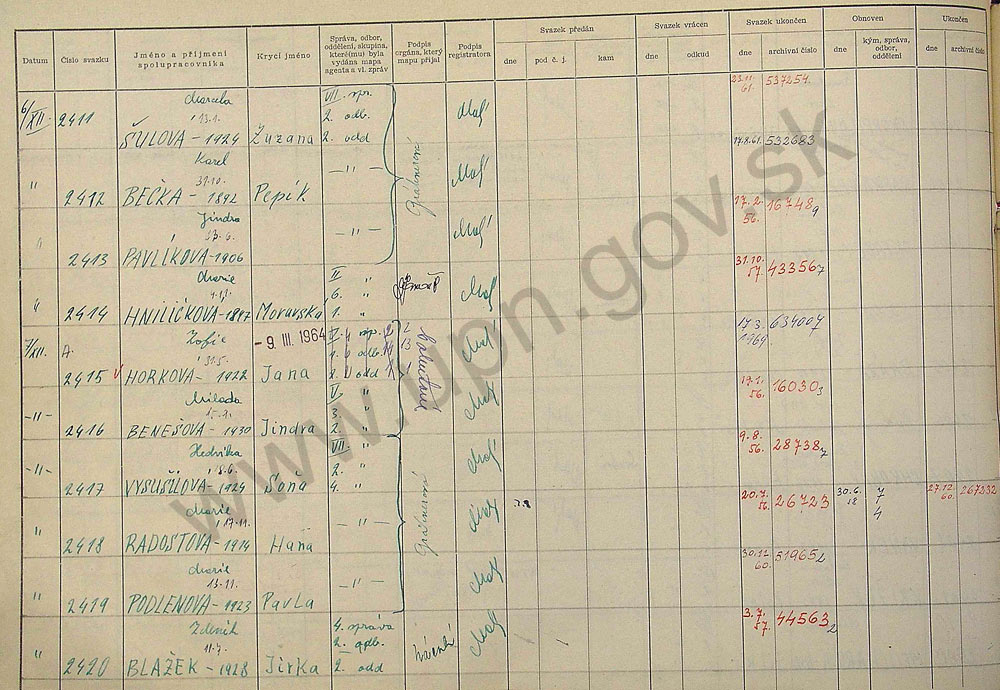 Datum Číslo svazku Jméno a příjmení spolupracovníka Krycí jméno Správa, odbor, oddělení, skupina, které(mu) byla vydána mapa agenta a vl. zpráv Podpis orgána, který mapu přijal Podpis registratora Svazek předán Svazek vrácen Svazek ukončen Obnoven Ukončen
dne pod č. j. kam dne odkud dne archivní číslo dne kým, správa, odbor, oddělení dne archivní číslo
Marcela VII. spr. 23.11. 537254
6/XII. 2411 13.1. 2. odb. 61.
ŠULOVA - 1924 Zuzana 2. odd
Karel 17.8.61. 532683
31.10. — " —
" 2412 BEČKA - 1892 Pepík
Jindra 17.2. 16748
23.6. — " — 56. 9
" 2413 PAVLÍKOVA - 1906
Marie II. " 31.10. 43356
6. " 57. 7
" 2414 HNILIČKOVA - 1897 Moravska 1. "
7/XII. A. Žofie - 9. III. 1964 17.3. 634007
31.5. 1964.
2415 √ HORKOVA - 1922 Jana
Milada V. " 19.1. 16030
—"— 3. " 56. 3
2416 BENEŠOVA - 1930 Jindra 2. "
Hedvika VII. " 9.8. 28738
—"— 8.6. 2. " 56. 7
2417 VYSUŠILOVA - 1924 Soňa 4. "
Marie 20.7. 26723 30.6. 7 27.12. 267232
17.11. — " — 56. 58 4 60.
" 2418 RADOSTOVA - 1914 Hana
Marie 30.12. 51965
13.11. — " — 60. 2
" 2419 PODLENOVA - 1923 Pavla
Zdeněk 4. správa 3.7. 44563
11.7. 2. odb. 57. 2
" 2420 BLAŽEK - 1928 Jirka 2. odd
www.upn.gov.sk